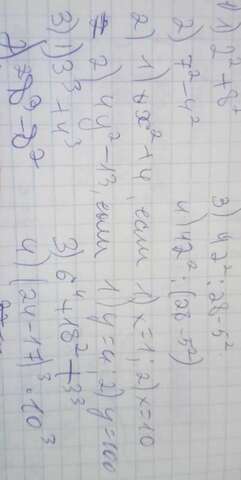 1) 1) 2²+8² 3) 42²:28-5²
2) 7²-4² 4) 42²:(28-5²)
2) 1) x²+4, если 1) x=1, 2) x=10
2) 4y²-13, если 1) y=4; 2) y=100
3) 1) 3³+4³ 3) 6⁴+18²+3³
2) 4) (24-17)³·10³